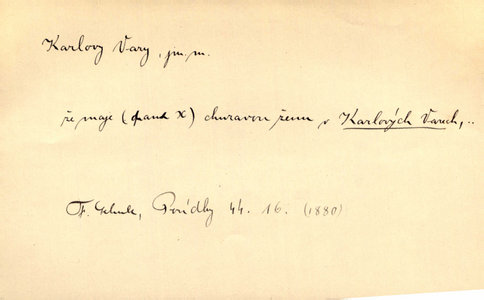 Karlovy Vary, jm. m.
že maje (pan X) churavou ženu v Karlových Varech,..
F. Schulz, Povídky 44. 16. (1880)